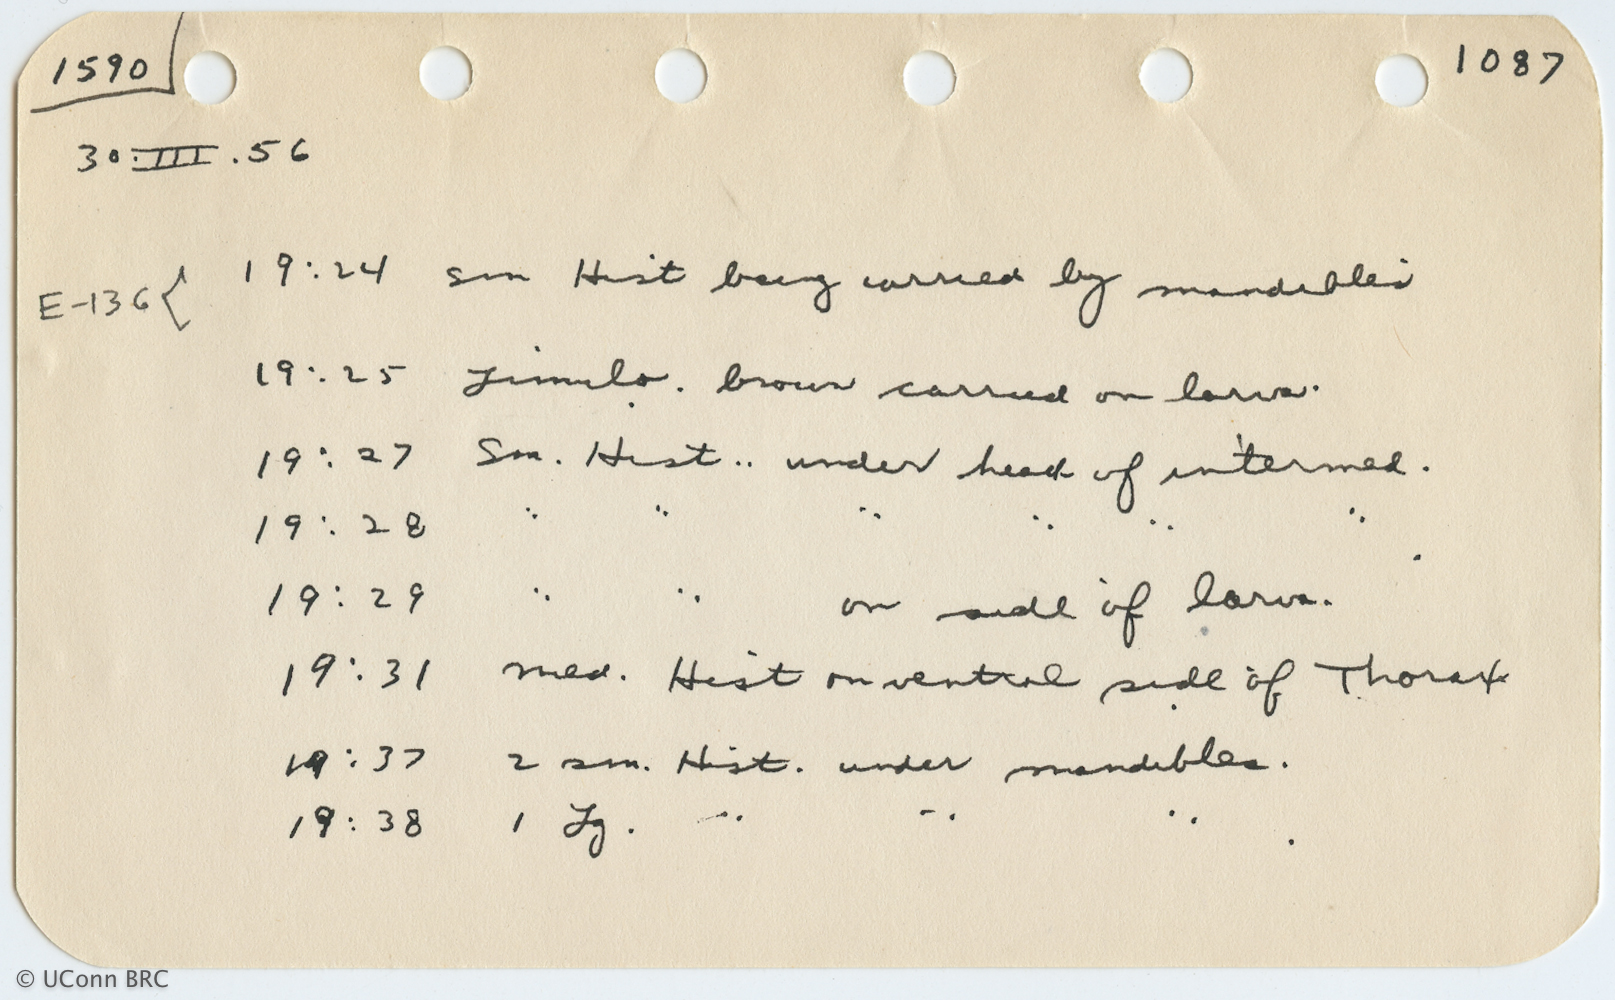 1590 1087
30.III.56
E-136{ 19:24 sm Hist being carried by mandibles
19:25 Limulo. brown carried on larva.
19:27 Sm. Hist.. under head of intermed.
19:28 " " " " " " .
19:29 " " on side of larva.
19:31 med. Hist on ventral side of Thorax
19:37 2 sm. Hist. under mandibles.
19:38 1 Lg. " " " .
© UConn BRC